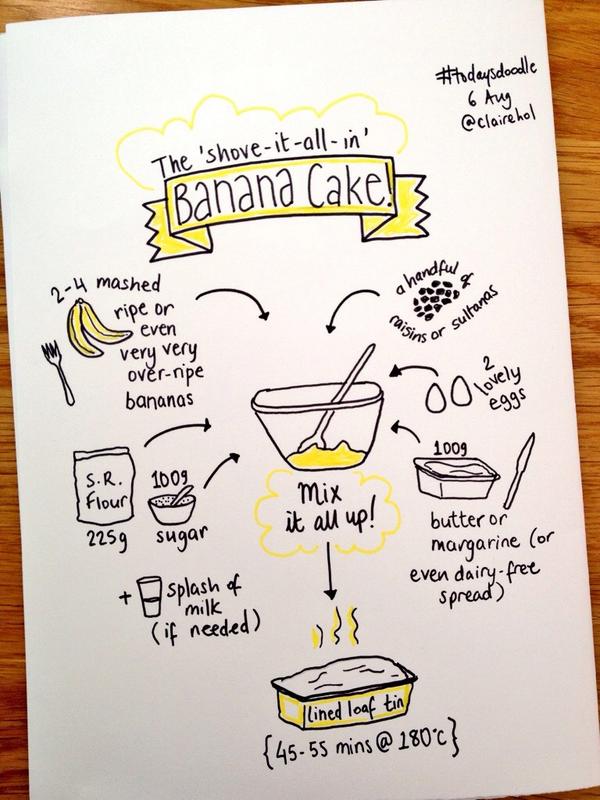 #todaysdoodle
6 Aug
@clairehol
The 'shove-it-all-in'
Banana Cake!
2-4 mashed
ripe or
even
very very
over-ripe
bananas
a handful of
raisins or sultanas
2
lovely
eggs
S.R.
Flour
225g
100g
sugar
100g
butter or
margarine (or
even dairy-free
spread)
Mix
it all up!
+ splash of
milk
(if needed)
lined loaf tin
{45-55 mins @ 180°c}